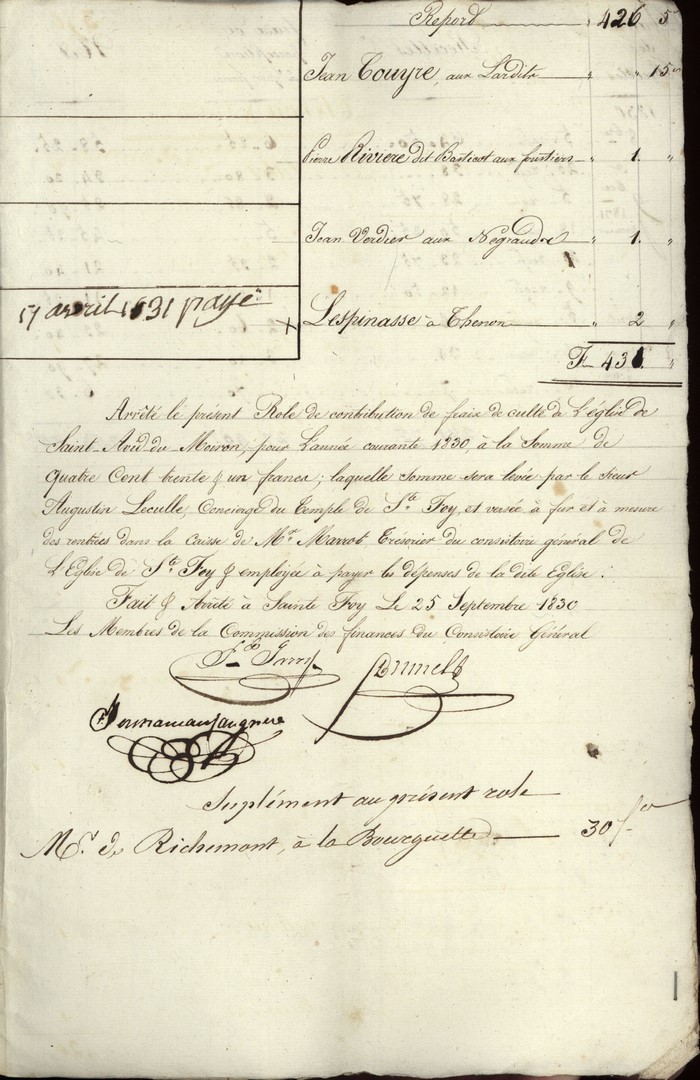 Report 426 5
Jean Couyre, aux Lardits " " 15
Pierre Riviere dit Barticot aux " 1. "
Jean Verdier aux Négraudx " 1. "
17 avril 1831 payé
x Lespinasse à Thenon " 2 "
F. 431. "
Arrêté le présent Role de contribution de frais de culte de L'église de
Saint-Avid du Moiron, pour L'année courante 1830, à la Somme de
quatre Cent trente & un francs; laquelle somme sera levée par le sieur
Augustin Leculle, Concierge du Temple de Ste. Foy, et versée à fur et à mesure
des rentrées dans la Caisse de Mr. Marrot, Trésorier du consistoire général de
L'Eglise de Ste. Foy & employée à payer les dépenses de la dite Eglise:
Fait & Arrêté à Sainte Foy Le 25 Septembre 1830
Les Membres de la Commission des finances du Consistoire Général
Brunel
Suplément au présent role
Mr. de Richemont, à la Bourguette 30 fr